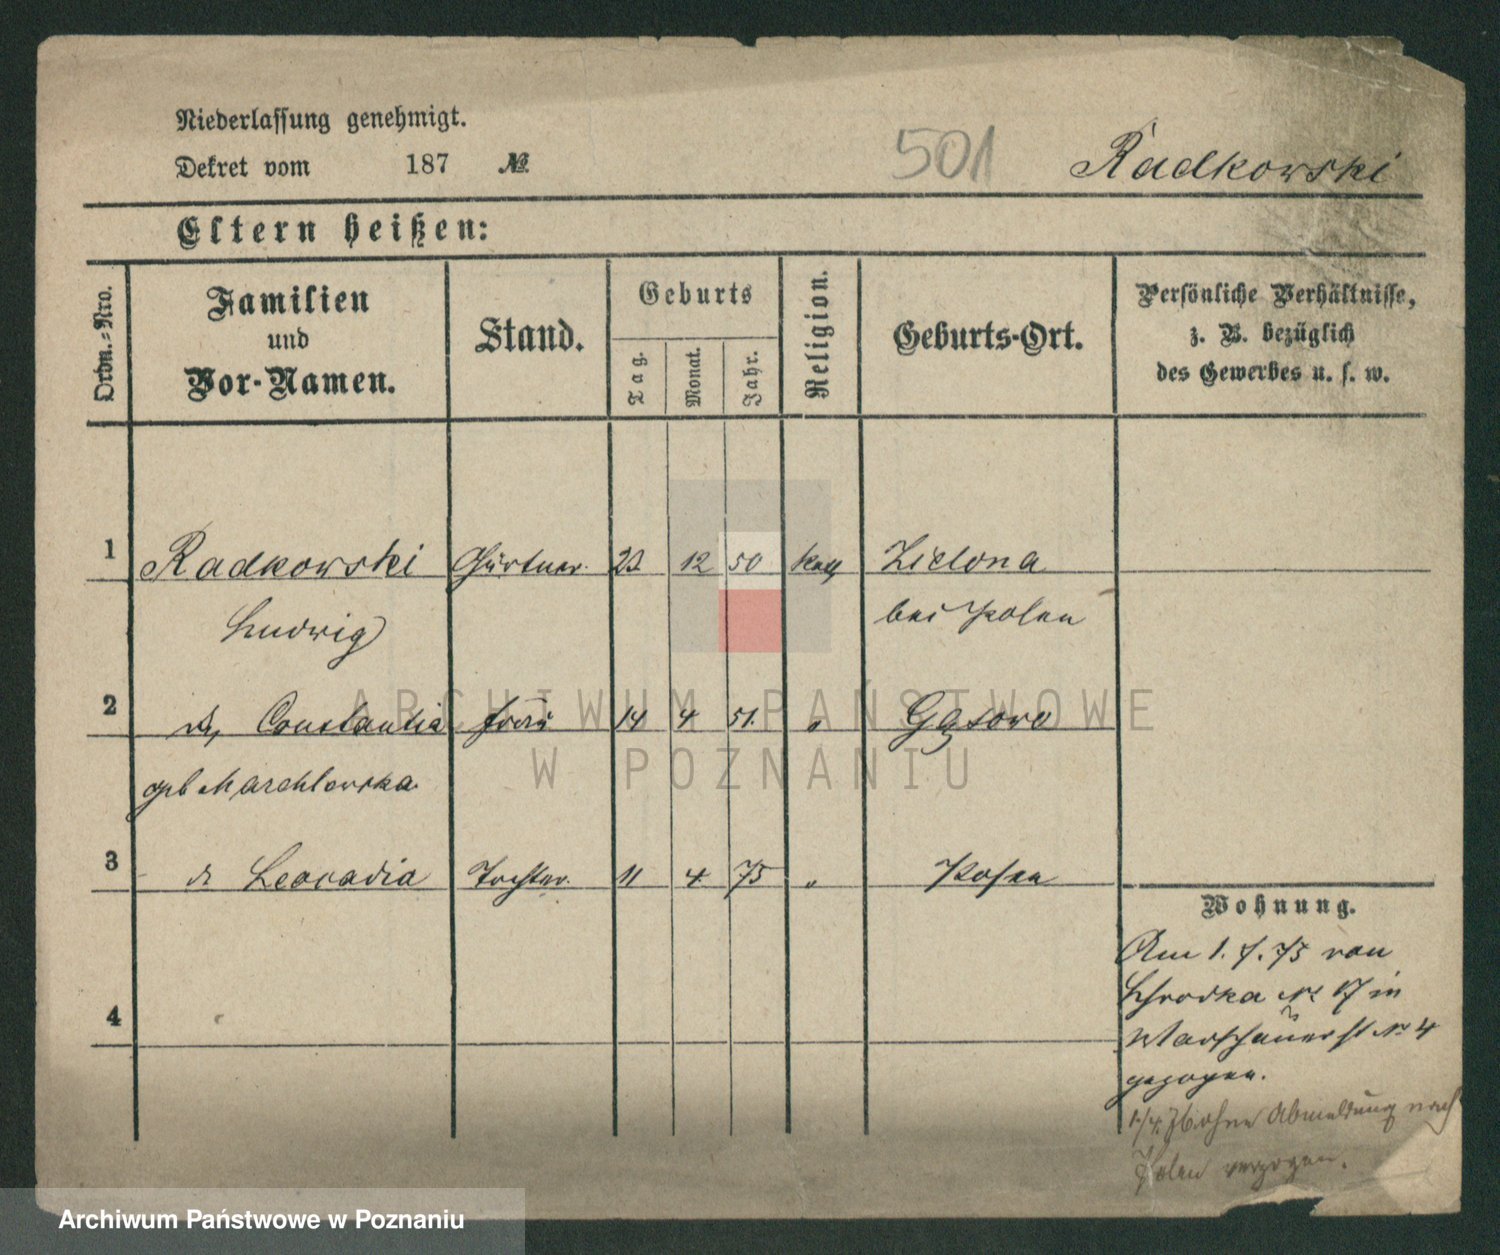 Niederlassung genehmigt.
Dekret vom 187 №
501 Radkowski
Eltern heißen:
Ordn.-Nro.
Familien
und
Vor-Namen.
Stand.
Geburts
Tag.
Monat.
Jahr.
Religion.
Geburts-Ort.
Persönliche Verhältnisse,
z. B. bezüglich
des Gewerbes u. s. w.
1 Radkowski Gärtner 23 12 50 kath Zielona
Ludwig bei Polen
2 Constantia Frau 14 4 51. " Gąsowo
geb Marchlewska
3 Leocadia Tochter 11 4 75 " Posen
4
Wohnung.
Am 1. 7. 75 von
Schrodka № 17 in
Warschauerst № 4
gezogen.
1/4. 76 ohne Abmeldung nach
Polen verzogen.
ARCHIWUM PAŃSTWOWE
W POZNANIU
Archiwum Państwowe w Poznaniu